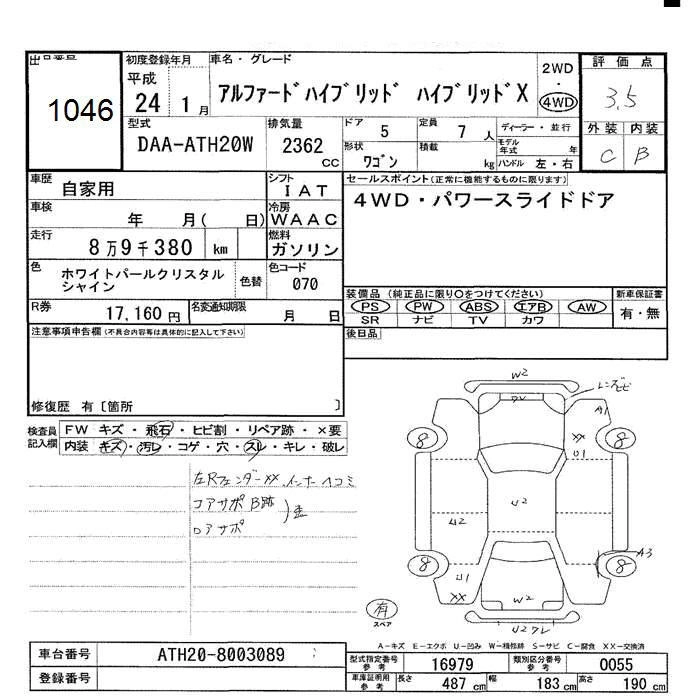 出品番号
1046
初度登録年月
平成
24 1月
車名・グレード
アルファードハイブリッド ハイブリッドX
2WD
・
4WD
評価点
3.5
型式
DAA-ATH20W
排気量
2362
CC
ドア
5
定員
7 人
ディーラー・並行
外装 内装
C B
形状
ワゴン
積載
kg
モデル年式
年
ハンドル 左・右
車歴
自家用
シフト
IAT
セールスポイント(正常に機能するものに限ります)
4WD・パワースライドドア
車検
年 月( 日)
冷房
WAAC
走行
8万9千380 km
燃料
ガソリン
色
ホワイトパールクリスタル
シャイン
色替
色コード
070
装備品 (純正品に限り○をつけてください)
新車保証書
PS PW ABS エアB AW
有・無
SR ナビ TV カワ
R券
17,160 円
名変通知期限
月 日
注意事項申告欄(不具合内容等は具体的に記入して下さい)
後日品
修復歴 有〔箇所 〕
検査員
記入欄
FW キズ・飛石・ヒビ割・リペア跡・×要
内装 キズ・汚レ・コゲ・穴・スレ・キレ・破レ
左RフェンダーXX.インナーヘコミ
コアサポB跡
ロアサポ
W2
レンズヒビ
A1
8
8
XX
U1
U2
U2
A3
8
8
U1
XX
W2
有
スペア
A-キズ E-エクボ U-凹み W-補修跡 S-サビ C-腐食 XX-交換済
車台番号
ATH20-8003089
型式指定番号
参考
16979
類別区分番号
参考
0055
登録番号
車庫証明用
参考
長さ
487 cm
幅
183 cm
高さ
190 cm